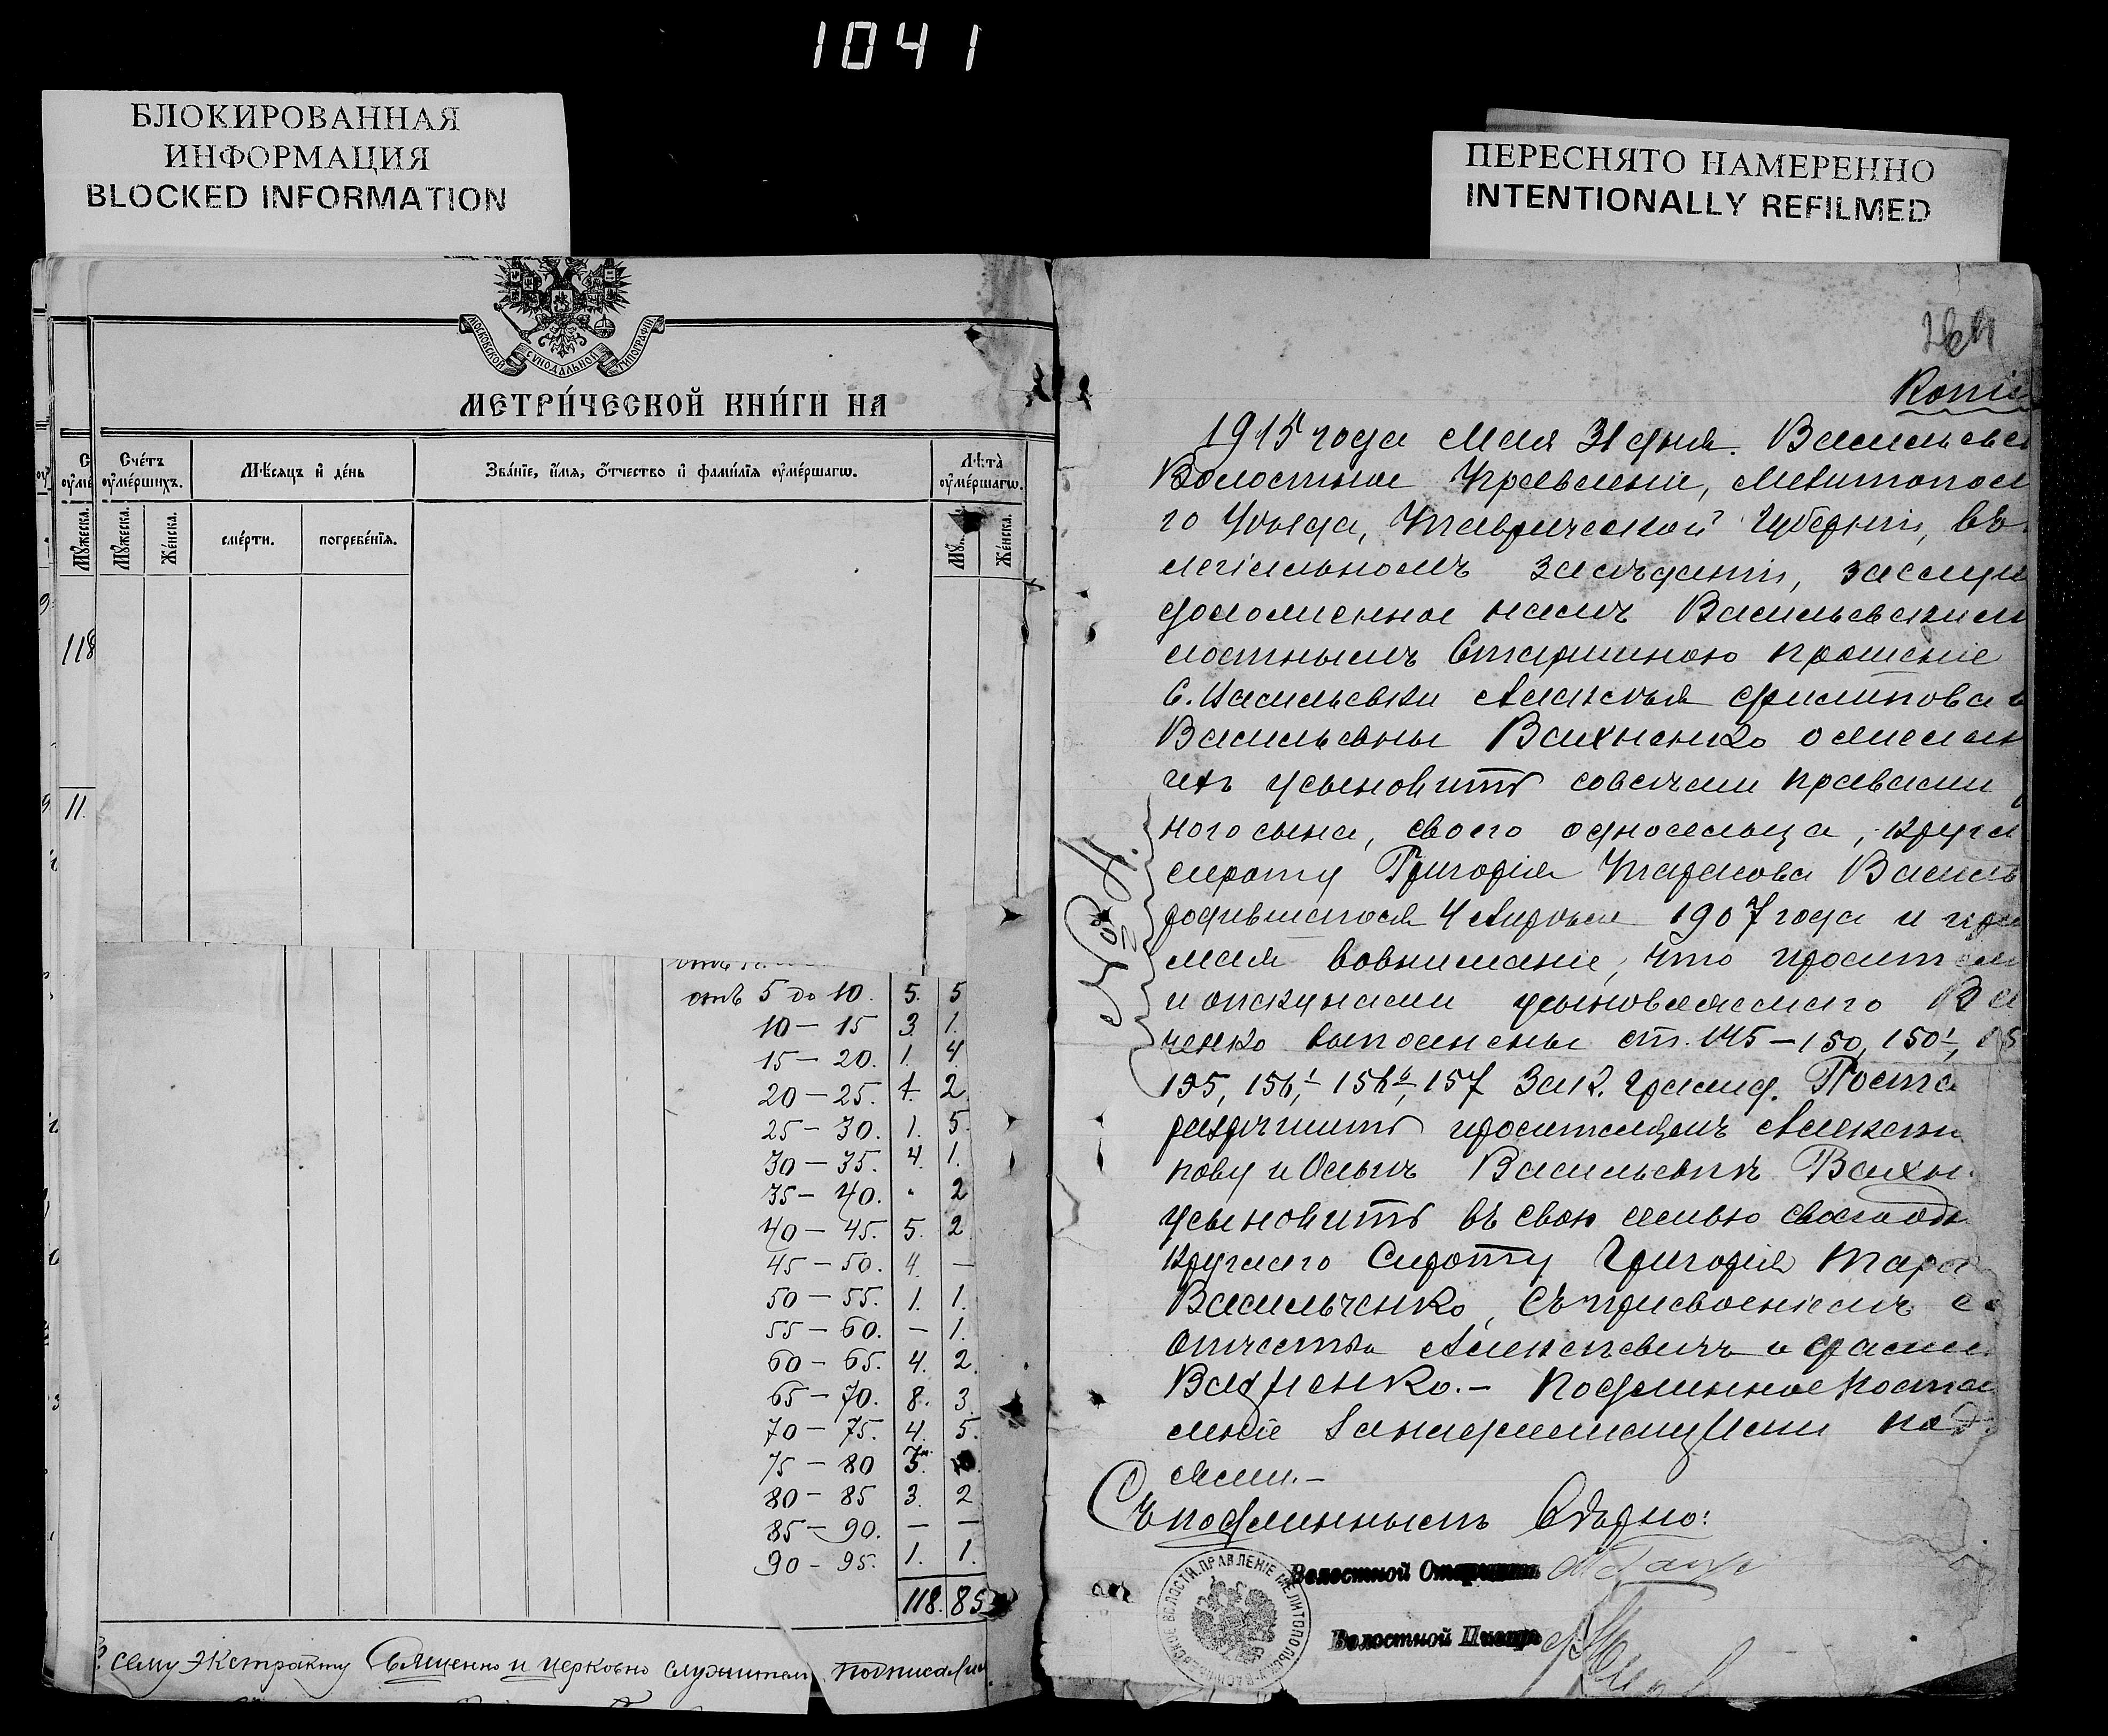 1041
БЛОКИРОВАННАЯ
ИНФОРМАЦИЯ
BLOCKED INFORMATION
ПЕРЕСНЯТО НАМЕРЕННО
INTENTIONALLY REFILMED
МОСКОВСКОЙ СѴНОДАЛЬНОЙ ТИПОГРАФІИ
МЕТРИ́ЧЕСКОЙ КНИ́ГИ НА
Сче́тъ ᲂу҆ме́ршихъ.
Мѣ́сяцъ и҆ де́нь
Зва́нїе, и҆́мѧ, ѻ҆́тчество и҆ фами́лїѧ ᲂу҆ме́ршагѡ.
Лѣ̑та ᲂу҆ме́ршагѡ.
Мꙋ́жеска.
Мꙋ́жеска.
Же́нска.
сме́рти.
погребе́нїѧ.
Же́нска.
118
11.
отъ 5 до 10. 5. 5
10 — 15 3. 1.
15 — 20. 1. 4.
20 — 25. 1. 2.
25 — 30. 1. 5.
30 — 35. 4. 1.
35 — 40. " 2
40 — 45. 5. 2.
45 — 50. 4. —
50 — 55. 1. 1.
55 — 60. — 1.
60 — 65. 4. 2.
65 — 70. 8. 3.
70 — 75. 4. 5.
75 — 80
80 — 85 3. 2
85 — 90. — —
90 — 95. 1. 1.
118. 85
сему экстракту Священно и церковно служители подписали
264
Копія
1915 года Мая 31 дня. Васильевс
Волостное Правленіе, Мелитопол
го Уѣзда, Таврической Губерніи, въ
легіальномъ засѣданіи, заслуш
доложенное намъ Васильевским
лостнымъ Старшиною прошеніе
С. Васильевки Алексѣя Филипова и
Васильевны Вахненко о желан
ихъ усыновить со всѣми правами
ного сына, своего односельца, кругл
сироту Григорія Тарасова Василь
родившагося 4 Апрѣля 1907 года и при
мая во вниманіе, что просител
и опекунами усыновляемаго Ва
ченко выполнены ст. 145 — 150, 150¹, 15
155, 156¹, 156⁴, 157 Зак. Гражд. Поста
разрѣшить просителямъ Алексѣю
пову и Ольгѣ Васильевнѣ Вахн
усыновить въ свою семью своего одн
круглаго Сироту Григорія Тара
Васильченко, съ присвоеніемъ е
отчества Алексѣевичъ и фамил
Вахненко. — Подлинное Поста
леніе за надлежащими под
сями. —
Съ подлиннымъ вѣрно:
Волостной Старшина
Волостной Писарь